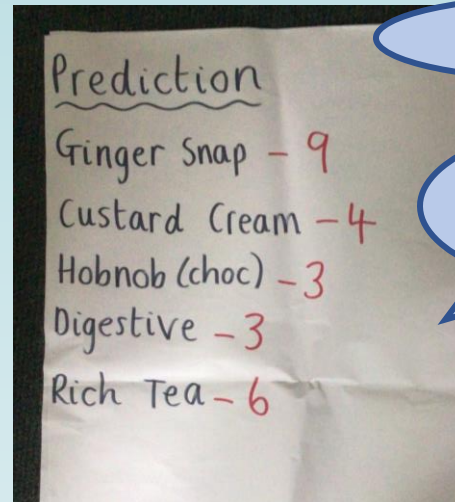 Prediction
Ginger Snap - 9
Custard Cream - 4
Hobnob (choc) - 3
Digestive - 3
Rich Tea - 6